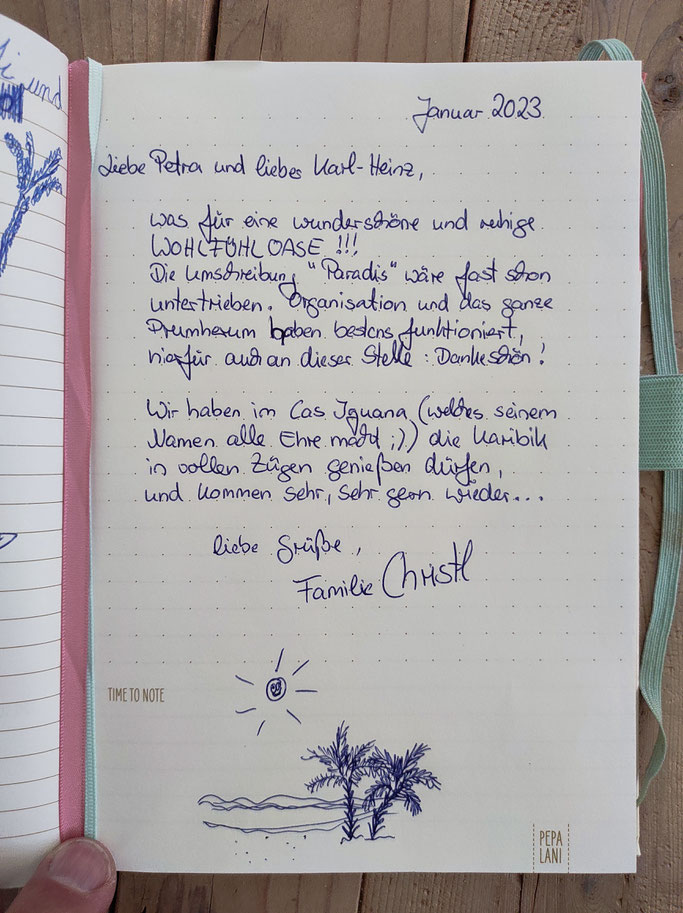 und
Januar 2023
Liebe Petra und lieber Karl-Heinz,
was für eine wunderschöne und ruhige
WOHLFÜHLOASE !!!
Die Umschreibung "Paradis" wäre fast schon
untertrieben. Organisation und das ganze
Drumherum haben bestens funktioniert,
hierfür auch an dieser Stelle: Dankeschön!
Wir haben im Cas Iguana (welches seinem
Namen alle Ehre macht ;)) die Karibik
in vollen Zügen genießen dürfen,
und kommen sehr, sehr gern wieder...
liebe Grüße,
Familie Christl
TIME TO NOTE
PEPA
LANI